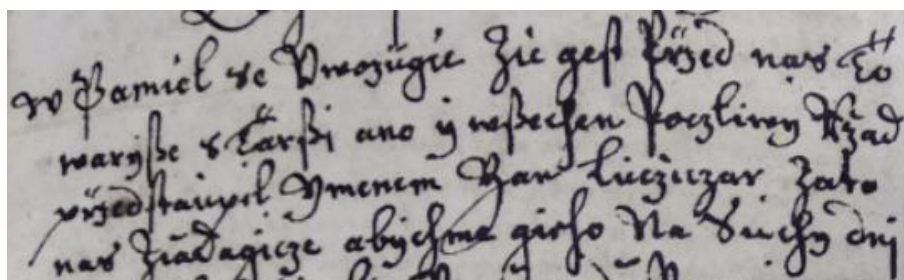 w Pamiel se Vwozugie Zie gest Przed nas To
waryſſe s Tarſſi ano y wſſechen Poczliwy Rzad
przedstaupil Ymenem Yan Zato
nas Ziadagicze abychme gieho Na Suchy dnj